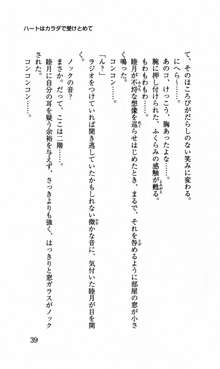 ハートはカラダで受けとめて
て、そのほころびがだらしのない笑みに変わる。
にへら……。
あの、けっこう、胸あったよな……。
腕に押し付けられた、ふくらみの感触が甦る。
もわもわもわ……。
睦月が不埒な想像をはじめたとき、まるで、それを咎めるように部屋の窓が小さ
く鳴った。
コンコン……。
ラジオをつけていれば聞き逃していたかもしれない微かな音に、気付いた睦月が目を開く。
ノックの音?
まさか。だって、ここは二階……。
睦月に自分の耳を疑う余裕を与えず、さっきよりも強く、はっきりと窓ガラスがノック
コンコンコン……。
39